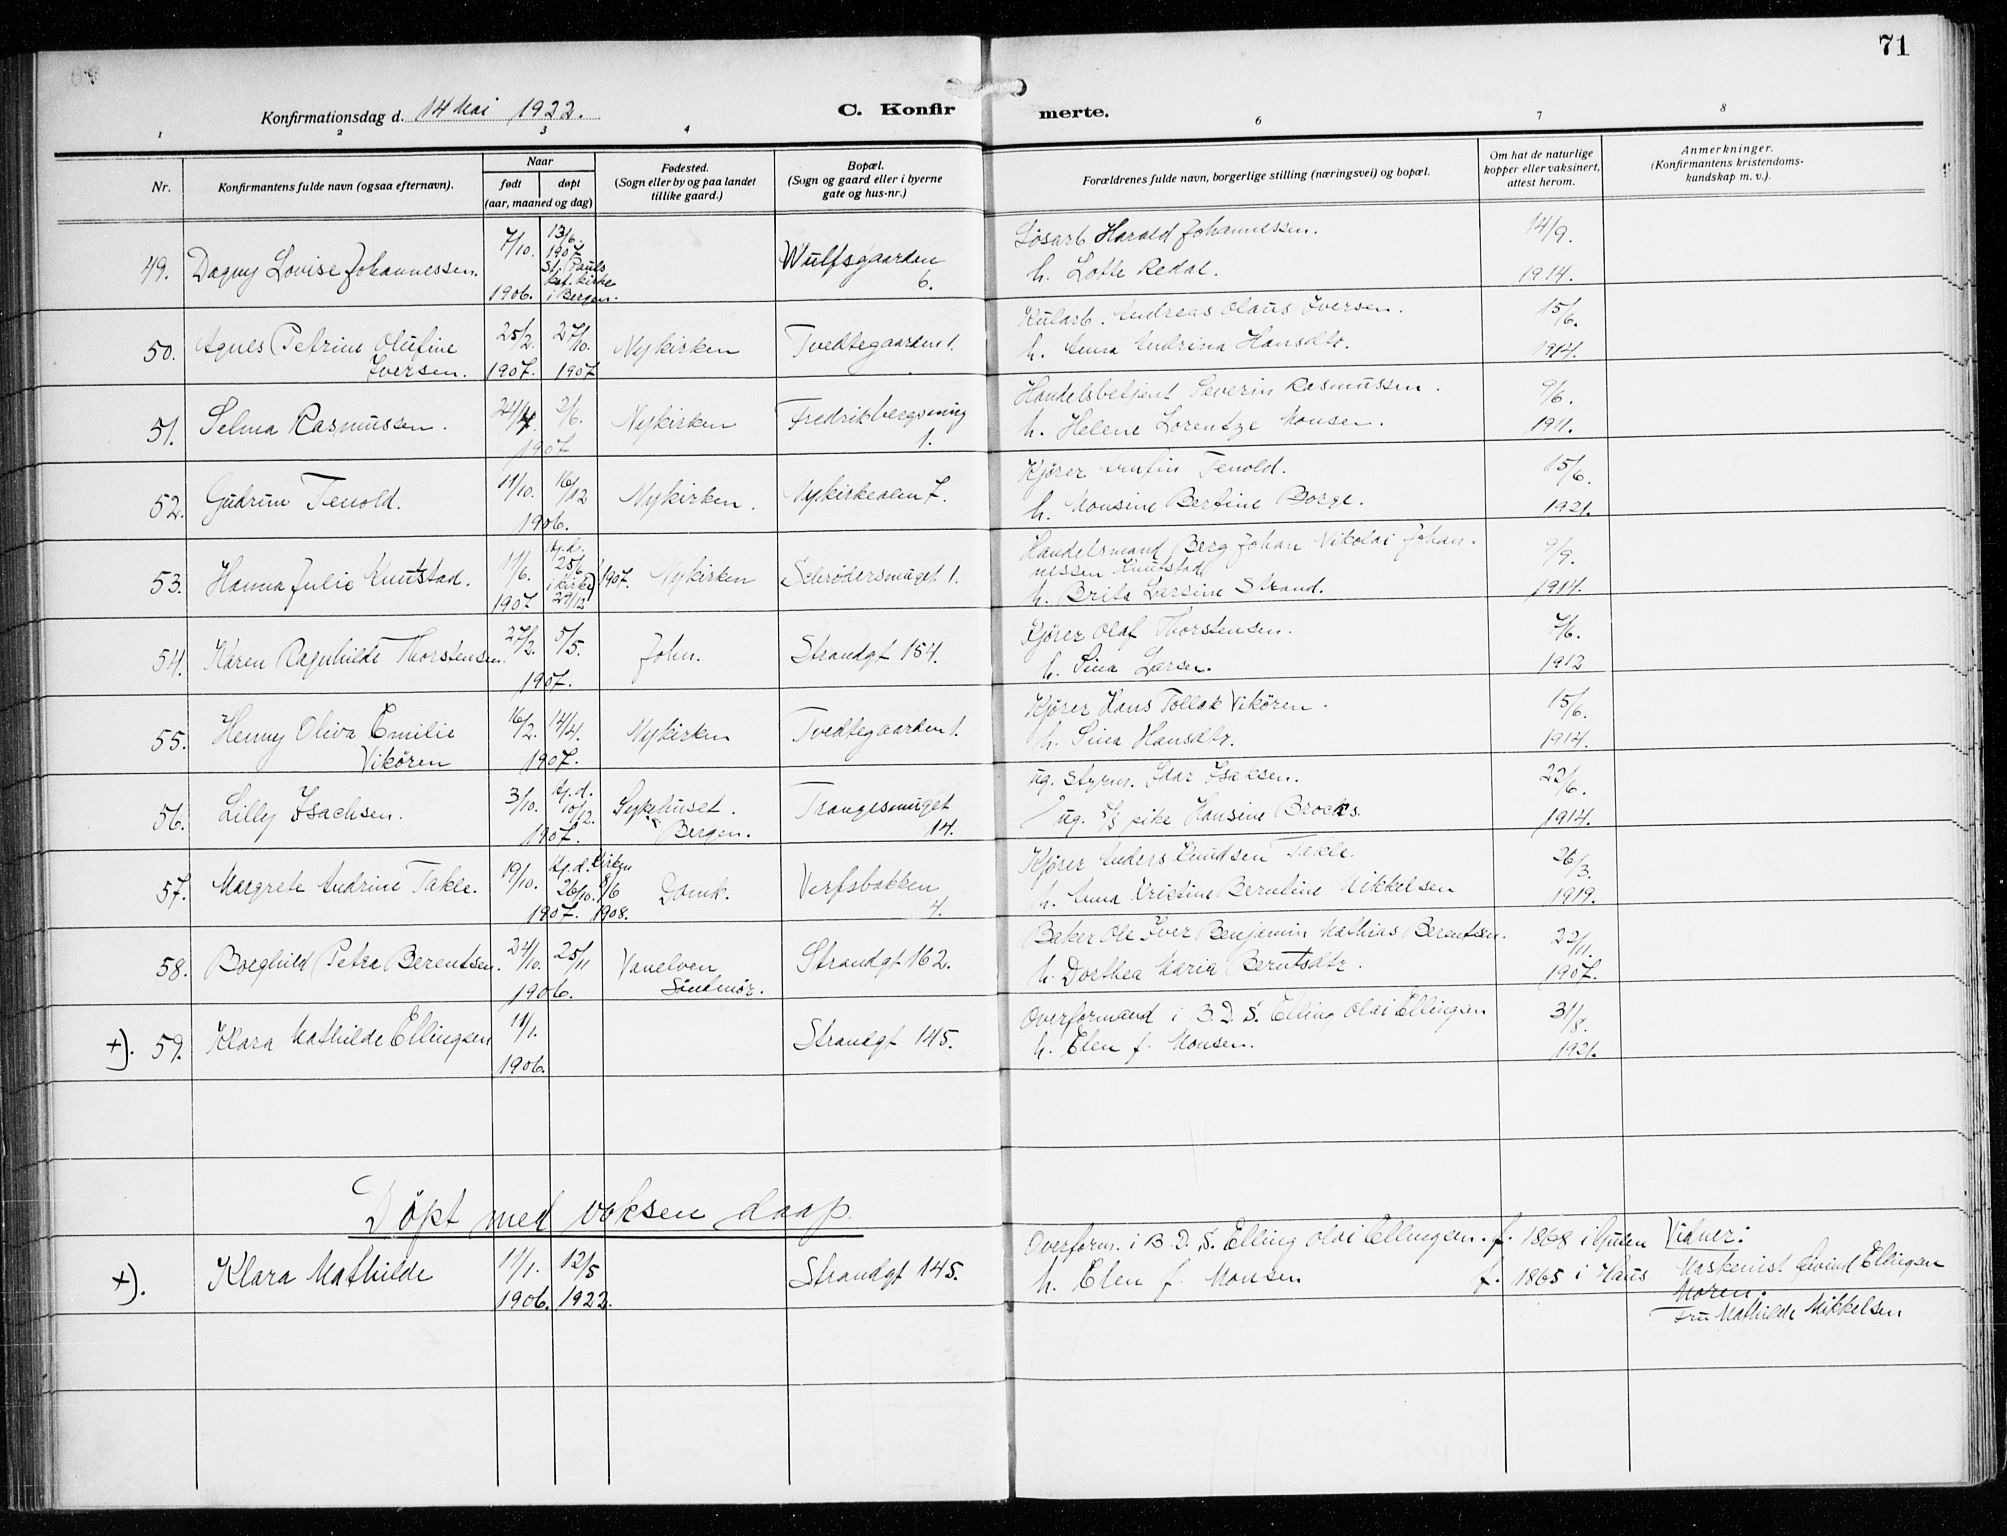 71
Konfirmationsdag d. 14 Mai 1922.
C. Konfirmerte.
1 2 3 4 6 7 8
Nr.
Konfirmantens fulde navn (ogsaa efternavn).
Naar
født døpt
(aar, maaned og dag)
Fødested.
(Sogn eller by og paa landet
tillike gaard.)
Bopæl.
(Sogn og gaard eller i byerne
gate og hus-nr.)
Forældrenes fulde navn, borgerlige stilling (næringsvei) og bopæl.
Om hat de naturlige
kopper eller vaksinert,
attest herom.
Anmerkninger.
(Konfirmantens kristendoms-
kundskap m. v.).
49. Dagny Lovise Johannessen. 7/10. 1906. 13/6. 1907 St. Pauls kat. kirke i Bergen. Wulfsgaarden 6.
Løsarb Harald Johannessen. 14/9.
h. Lotte Redal. 1914.
50. Agnes Petrine Olufine Iversen. 25/2. 1907. 27/10. 1907 Nykirken Tvedtegaarden 1.
Kularb. Andreas Olaus Iversen. 15/6.
h. Anna Andrina Hansdtr. 1914.
51. Selma Rasmussen. 24/4 2/6. 1907 Nykirken Fredrikbergsvining 1.
Handelsbetjent Severin Rasmussen. 9/6.
h. Helene Lorentze Monsen. 1911.
52. Gudrun Tenold. 11/10. 16/12 1906. Nykirken. Nykirkealen 7.
Kjører Arnfin Tenold. 15/6.
h. Monsine Bertine Borge. 1921.
53. Hanna Julie Knutstad. 11/6. 1907 hj.d. 25/6 i kirke 29/12 1907. Nykirken Schrødersmuget 1.
Handelsmand Berg Johan Nikolai Johan-
nessen Knutstad 9/9.
h. Brita Larsine Strand. 1914.
54. Karen Ragnhilde Thorstensen. 27/2. 5/5. 1907. John. Strandgt 154.
Kjører Olaf Thorstensen. 7/6.
h. Sina Larsen. 1912
55. Henny Oliva Emilie Vikören 16/2. 14/4. 1907. Nykirken Tvedtegaarden 1.
Kjører Hans Tollak Vikören. 15/6.
h. Sina Hansdtr. 1914.
56. Lilly Isachsen. 3/10. hj.d. 10/12. 1907. Sykehuset. Bergen. Trangesmuget 14.
ug. Styrm. Idar Isaksen. 22/6.
ug. pike Hansine Brocks. 1914.
57. Margrete Andrine Takle. 19/10. hj.d. 26/10. 1907. kirken 8/6 1908. Domk. Verfsbakken 4.
Kjører Anders Knudsen Takle. 26/3.
h. Anna Kristine Berntine Mikkelsen 1919.
58. Borghild Petra Berentsen. 24/10. 25/11 1906. Vanelven Söndmör. Strandgt 162.
Baker Ole Iver Benjamin Mathias Berentsen. 22/11.
h. Dorthea Maria Berntsdtr. 1907.
+). 59. Klara Mathilde Ellingsen 11/1. 1906. Strandgt 145.
Overformand i B. D. S. Elling Olai Ellingsen 31/8.
h. Elen f. Monsen. 1921.
Döpt med voksen daap.
+). Klara Mathilde 11/1. 1906. 12/5 1922. Strandgt 145.
Overform. i B. D. S. Elling Olai Ellingsen. f. 1868 i Gulen
h. Elen f. Monsen f. 1865 i Haus
Vidner:
Maskenist Eivind Ellingsen
Moren.
Fru Mathilde Mikkelsen